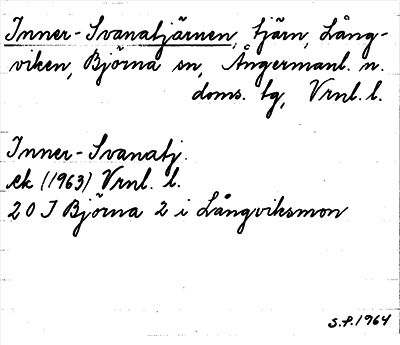 Inner-Svanatjärnen, tjärn, Lång-
viken, Björna sn, Ångermanl. n.
doms. tg, Vrnl. l.
Inner-Svanatj.
ek (1963) Vrnl. l.
20 I Björna 2 i Långviksmon
S.F. 1964